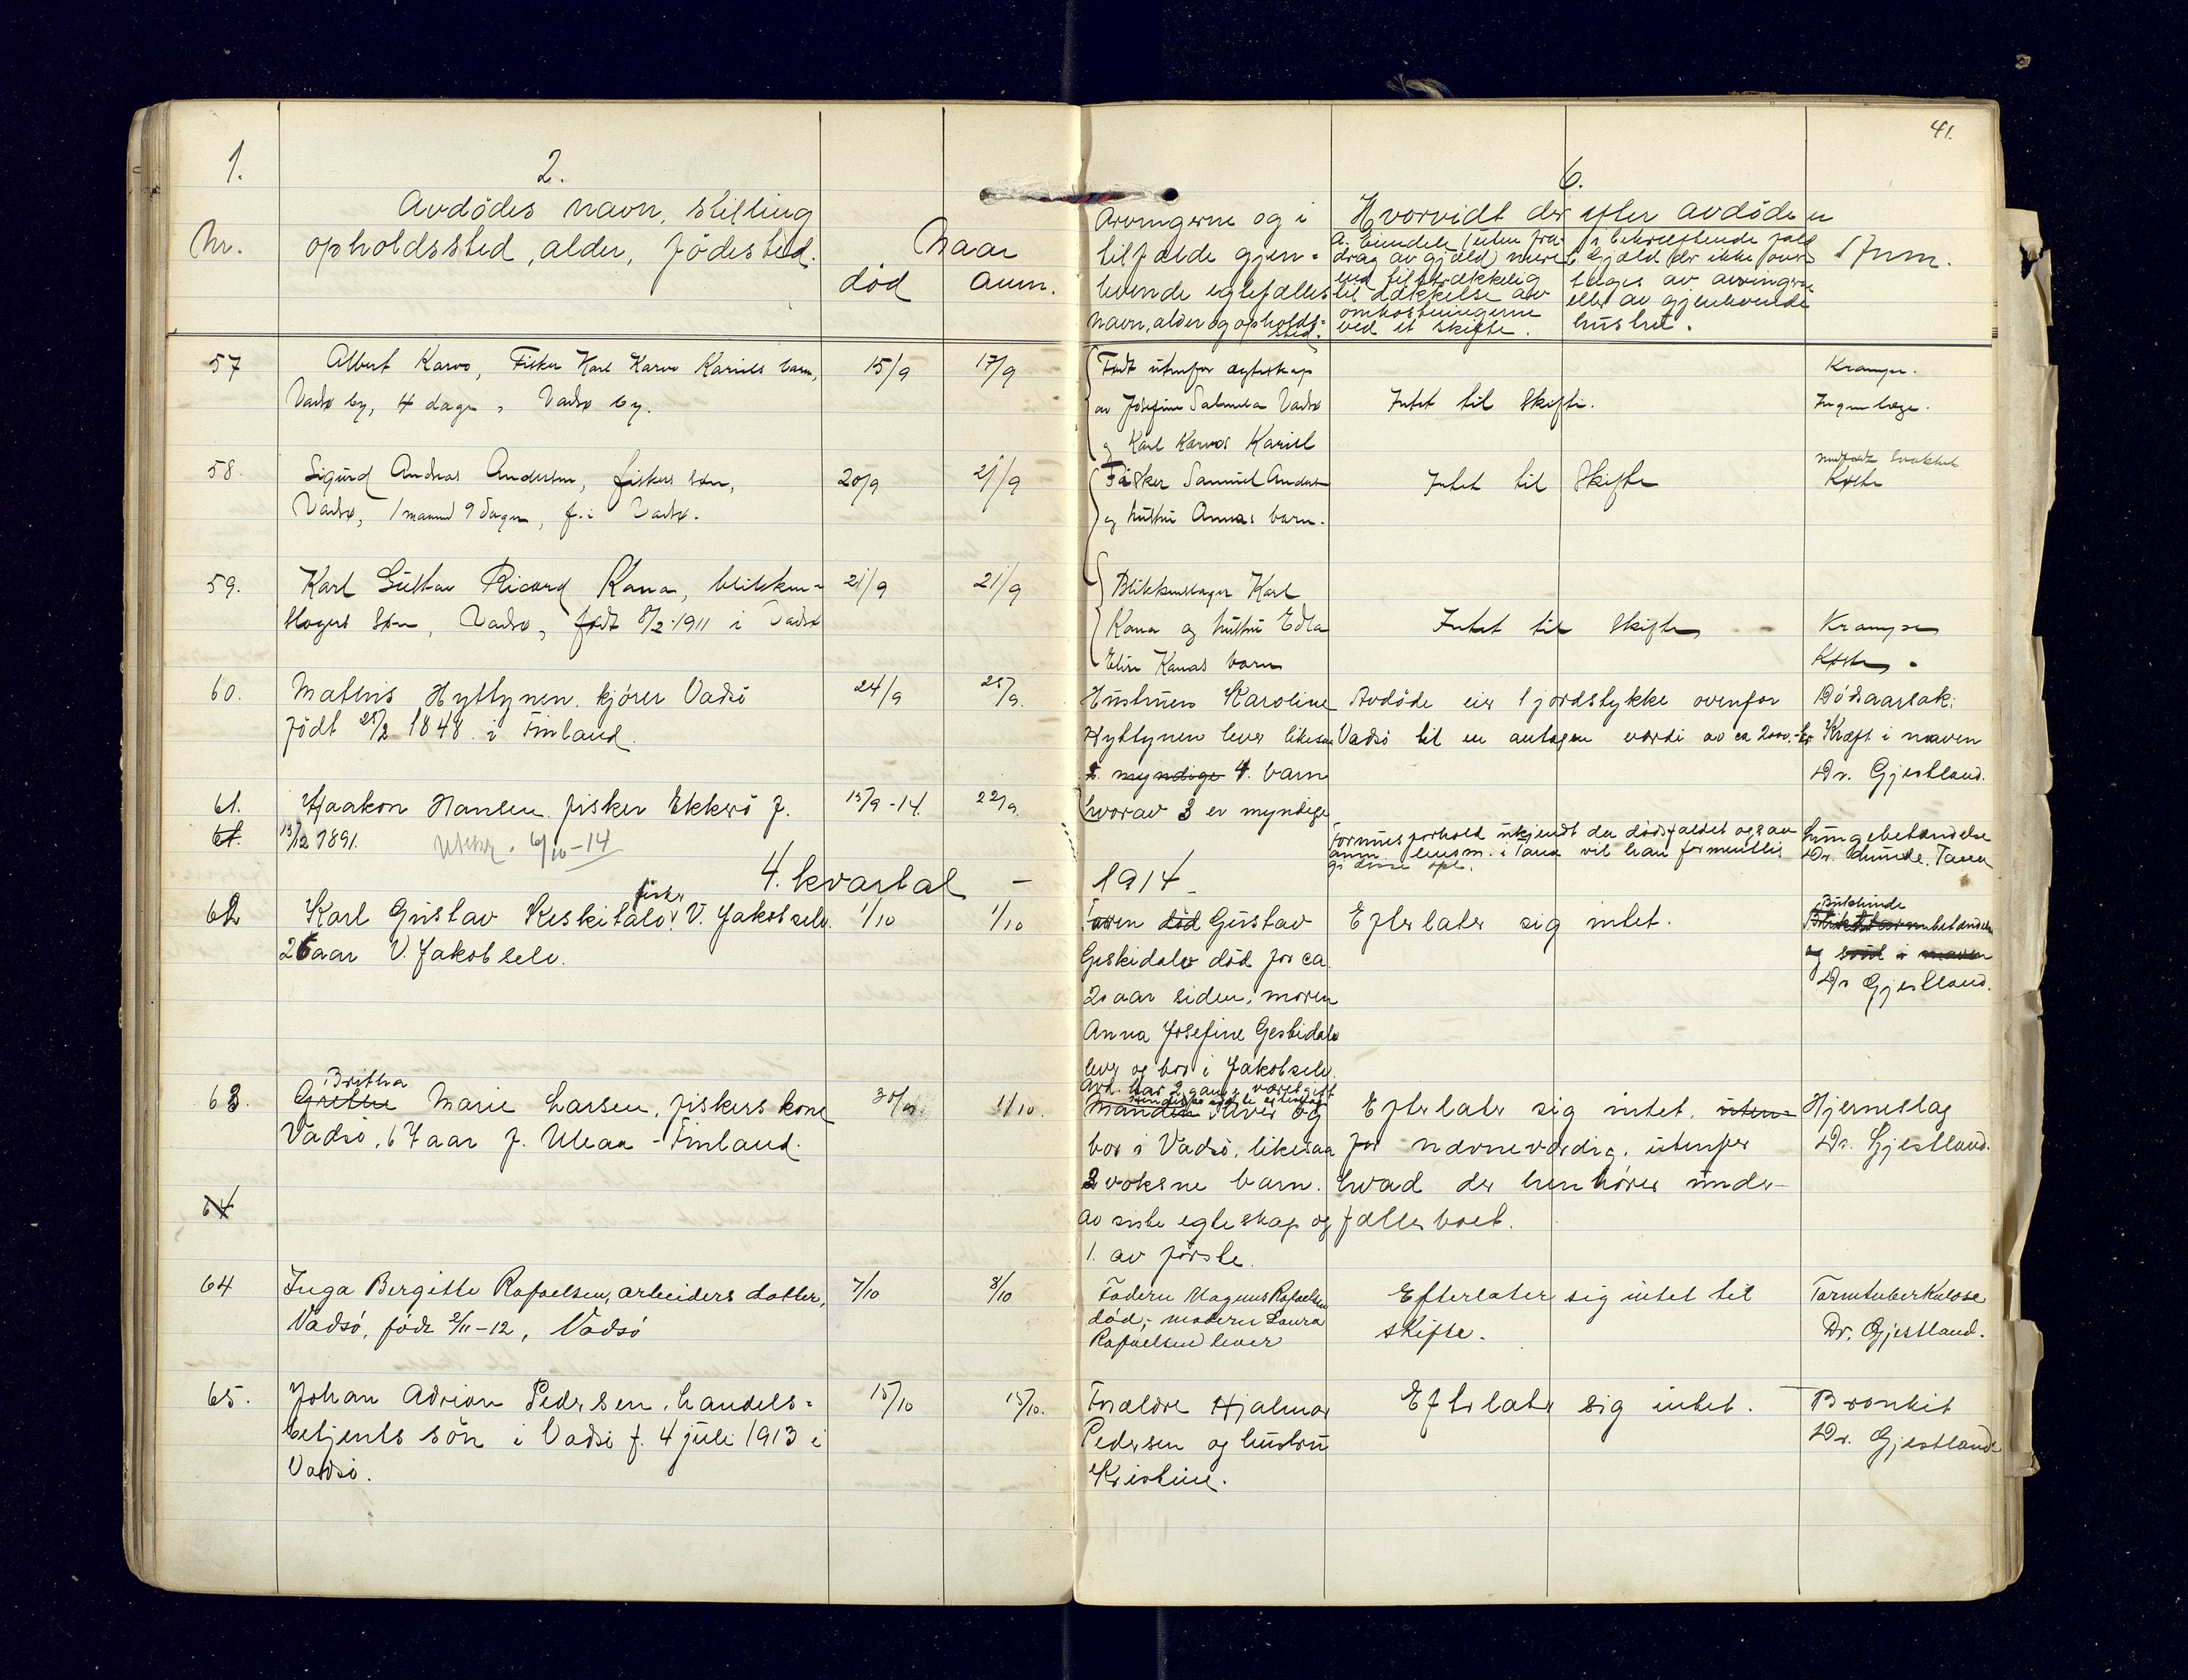 41.
1.
2.
6.
Nr.
Avdödes navn, stilling
opholdssted, alder, födested.
Naar
död
anm.
Arvingerne og i
tilfælde gjen-
levende egtefælles
navn, alder og opholds-
sted.
Hvorvidt der efter avdöde er
a. Eiendele (uten fra-
drag av gjæld) mere
end tilstrækkelig
til dækkelse av
omkostningerne
ved et skifte.
i bekræftende fald
b. gjæld der ikke over-
tages av arvingerne
eller av gjenlevende
hustru.
57
Albert Karvo, Fisker Karl Karvo Kariels barn,
Vadsø by, 4 dage, Vadsø by.
15/9
17/9
Født utenfor ægteskap
av Josefine Salmela Vadsø
og Karl Karvos Kariel
Intet til skifte.
Krampe.
Ingen læge.
58.
Sigurd Andreas Andersen, fiskers søn,
Vadsø, 1 maaned 9 dager, f. i Vadsø.
20/9
21/9
Fisker Samuel Anders
og hustru Annas barn.
Intet til Skifte
medfødt svakhet
Koste
59.
Karl Gustav Ricard Kana, blikken-
slagers søn, Vadsø, født 8/2-1911 i Vadsø
21/9
21/9
Blikkenslager Karl
Kana og hustru Edla
Elise Kanas barn
Intet til skifte
Krampe
Koste.
60.
Mathis Hyttynen. kjörer Vadsö
födt 25/2 1848. i Finland.
24/9
25/9.
Hustruen Karoline
Hyttynen lever likesaa
myndige 4. barn
hvorav 3 er myndige
Avdöde eier 1 jordstykke ovenfor
Vadsö til en antagen værdi av ca 2000.- kr.
Dödsaarsak:
Kræft i maven
Dr. Gjestland.
61.
61.
Haakon Hansen. fisker Ekkerö f.
13/12 1891.
6/10-14
15/9-14.
22/9
Formuesforhold ukjendt da dödsfaldet ogsaa
anm. lensm. i Tana vil han formentlig
gi disse opl.
Lungebetændelse
Dr. Lunde. Tana
4. kvartal - 1914-
62
Karl Gustav Keskitalo, fisker V. Jakobselv.
26 aar V. Jakobselv.
1/10
1/10
Faren död Gustav
Geskidalo död for ca.
20 aar siden, moren
Anna Josefine Geskidalo
lever og bor i Jakobselv.
Efterlater sig intet.
og saad i maven
Dr Gjestland.
63.
Britha
Grethe Marie Larsen, fiskers kone
Vadsö, 67 aar f. Uleaa - Finland.
30/9.
1/10.
Avd. har 2 gange været gift
Manden lever og
bor i Vadsö, likesaa
2 voksne barn.
av siste egteskap og
1. av förste.
Efterlater sig intet. uten-
for nævneværdig, utenfor
hvad der henhörer under
fællesboet.
Hjerneslag
Dr. Gjestland.
64
64
Inga Bergitte Rafaelsen, arbeiders datter,
Vadsö, födt 2/11-12, Vadsö
7/10
8/10
Faderen Magnus Rafaelsen
död; moderen Laura
Rafaelsen lever
Efterlater sig intet til
skifte.
Tarmtuberkulose
Dr. Gjestland.
65.
Johan Adrian Pedersen. handels-
betjents sön i Vadsö f. 4 juli 1913 i
Vadsö.
15/10
15/10.
Forældre Hjalmar
Pedersen og hustru
Kristine.
Efterlater sig intet.
Bronkit
Dr. Gjestland